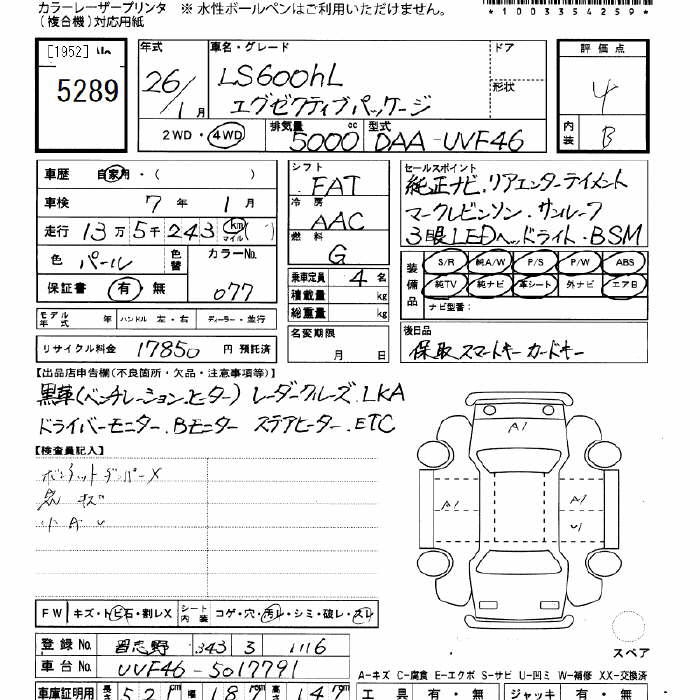 カラーレーザープリンタ ※ 水性ボールペンはご利用いただけません。
(複合機)対応用紙
*1003354259*
[1952] 5289
年式 26/1月
車名・グレード LS600hL エグゼクティブパッケージ
ドア
形状
評価点 4
内装 B
2WD・4WD 排気量 5000 cc 型式 DAA-UVF46
車歴 自家用・( )
車検 7年 1月
走行 13万5千243 km マイル ( )
色 パール 色替 カラーNo. 077
保証書 有・無
シフト FAT
冷房 AAC
燃料 G
乗車定員 4名
積載量 kg
総重量 kg
セールスポイント
純正ナビ.リアエンターテイメント
マークレビンソン.サンルーフ
3眼LEDヘッドライト.BSM
装備品 S/R 純A/W P/S P/W ABS
純TV 純ナビ 革シート 外ナビ エアB
ナビ型番:
モデル年式 年 ハンドル 左・右 ディーラー・並行
名変期限 月 日
後日品 保取.スマートキー カードキー
リサイクル料金 17850 円 預託済
【出品店申告欄(不良箇所・欠品・注意事項等)】
黒革(ベンチレーション.ヒーター) レーダークルーズ.LKA
ドライバーモニター.Bモニター ステアヒーター.ETC
【検査員記入】
ボンネットダンパーX
キズ
小A U
A1
A1
A1
U1
FW キズ・トビ石・割レX シート内装 コゲ・穴・汚レ・シミ・破レ・スレ
登録No. 習志野 343 3 1116
車台No. UVF46-5017791
スペア
A-キズ C-腐食 E-エクボ S-サビ U-凹ミ W-補修 XX-交換済
車庫証明用 長さ 52 cm 幅 18 高 147
工具 有・無 ジャッキ 有・無